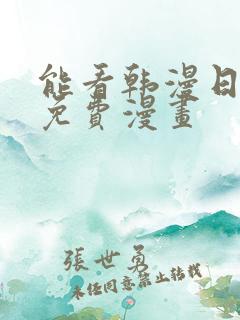 能看韩漫日
免費漫畫
張世勇
未经同意禁止转载